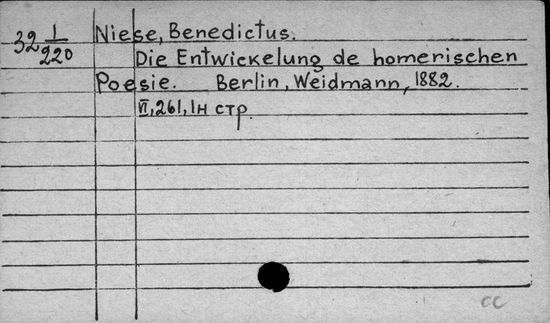 32 1/220
Niese, Benedictus.
Die Entwickelung de homerischen
Poesie. Berlin, Weidmann, 1882.
VI, 261, 1н стр.
cc